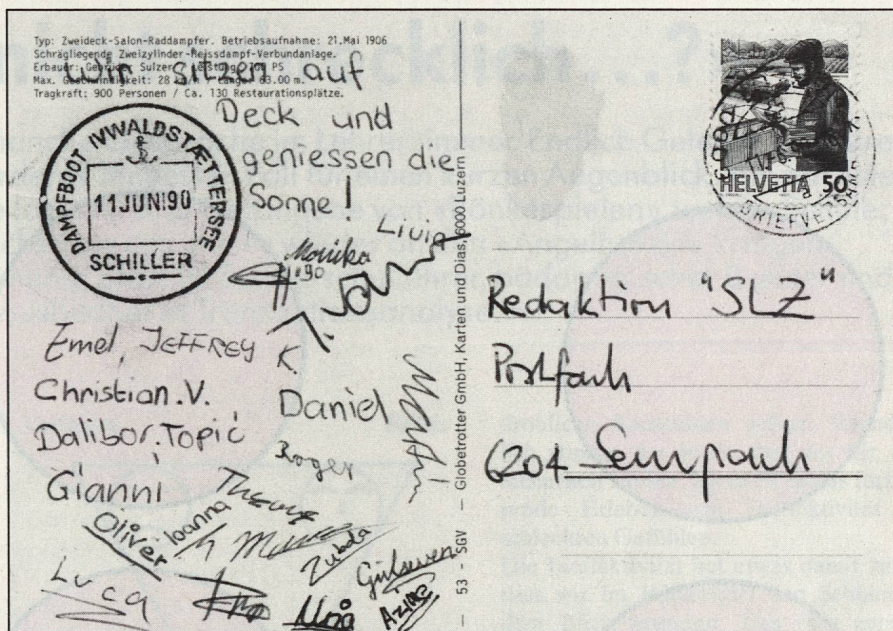 Typ: Zweideck-Salon-Raddampfer. Betriebsaufnahme: 21.Mai 1906
Schrägliegende Zweizylinder-Heissdampf-Verbundanlage.
Erbauer: Gebrüder Sulzer / Leistung: 700 PS
Max. Geschwindigkeit: 28 km/h / Länge: 63.00 m.
Tragkraft; 900 Personen / Ca. 130 Restaurationsplätze.
Wir sitzen auf
Deck und
geniessen die
Sonne!
DAMPFBOOT IVWALDSTÆTTERSEE
11 JUNI 90
SCHILLER
Monika
Livia
Emel, JEFFREY
Christian.V.
Dalibor.Topić
Gianni
K
Daniel
Roger
Martin
Oliver
Joanna
Luca
Zubda
Gülseven
53 – SGV – Globetrotter GmbH, Karten und Dias, 6000 Luzern
HELVETIA 50
BRIEFVERS
Redaktion "SLZ"
Postfach
6204 Sempach